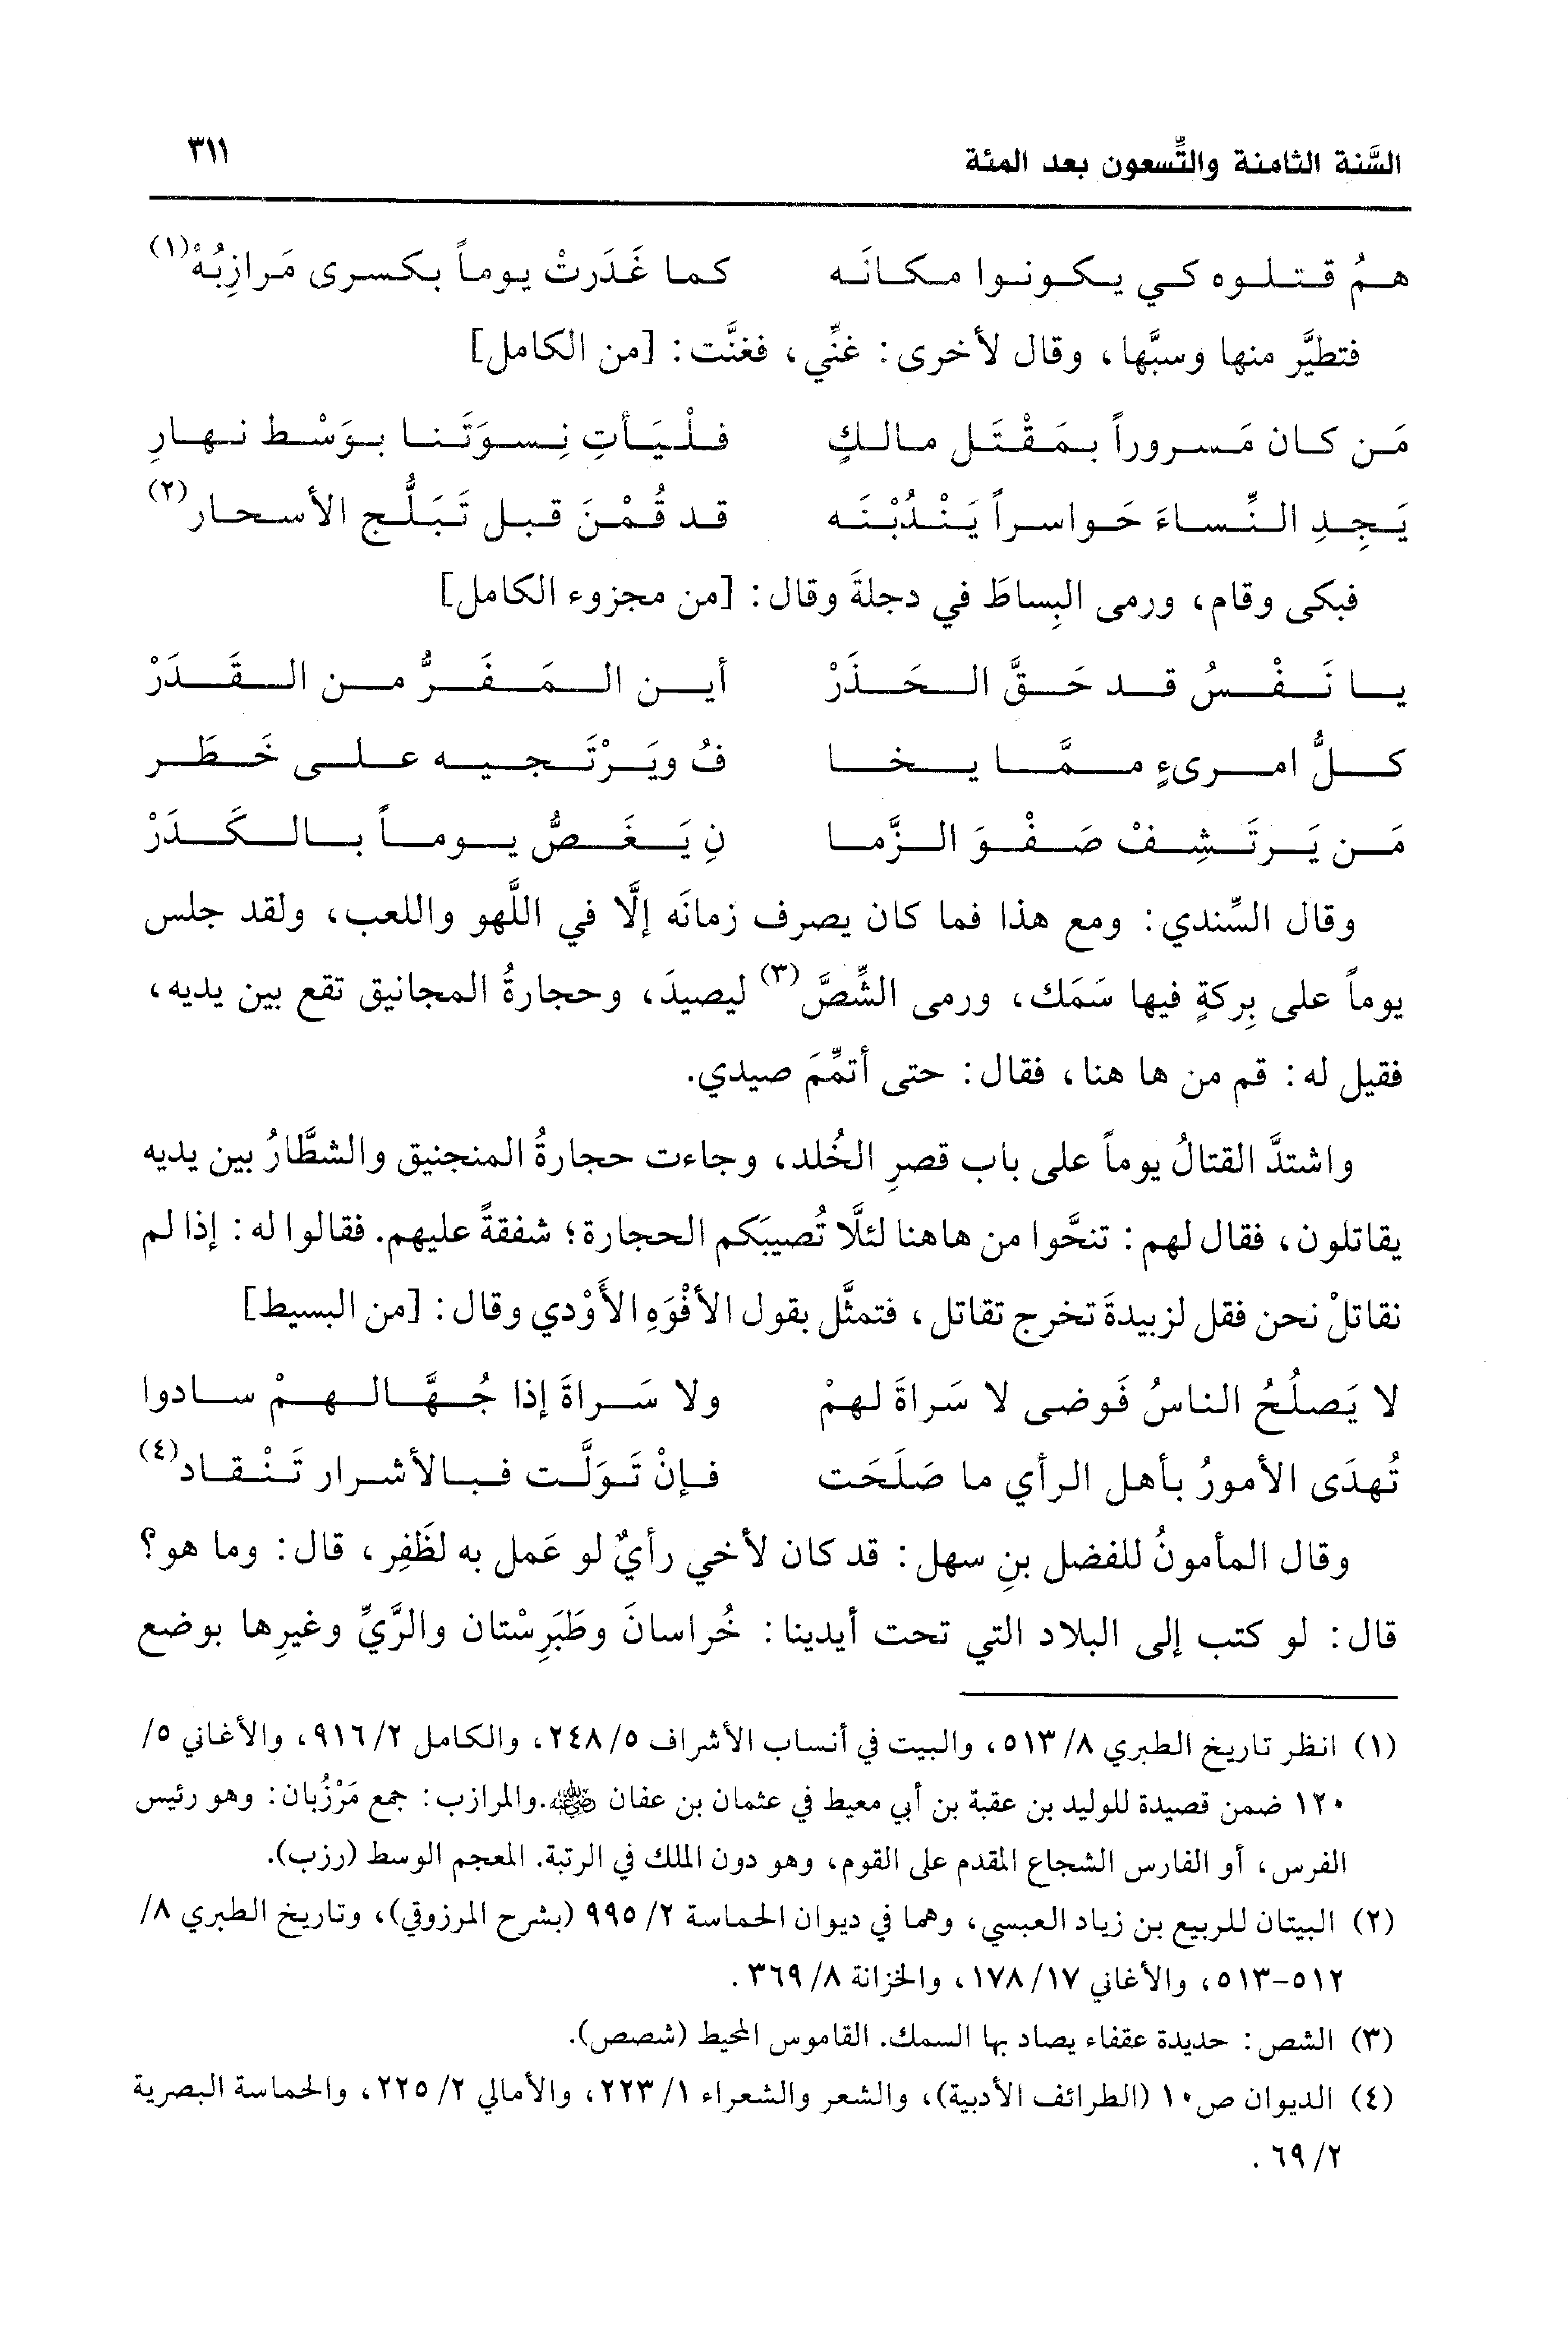 السَّنة الثامنة والتِّسعون بعد المئة ٣١١
همُ قتلوه كي يكونوا مكانَه كما غَدَرتْ يوماً بكسرى مَرازِبُهْ(١)
فتطيَّر منها وسبَّها، وقال لأخرى: غنِّي، فغنَّت: [من الكامل]
مَن كان مَسروراً بمَقْتَل مالكٍ فلْيَأتِ نِسوَتَنا بوَسْط نهارِ
يَجِدِ النِّساءَ حَواسراً يَنْدُبْنَه قد قُمْنَ قبل تَبَلُّج الأسحار(٢)
فبكى وقام، ورمى البِساطَ في دجلةَ وقال: [من مجزوء الكامل]
يا نَفْسُ قد حَقَّ الحَذَرْ أين المَفَرُّ من القَدَرْ
كلُّ امرىءٍ ممَّا يخا فُ ويَرْتَجيه على خَطَر
مَن يَرتَشِفْ صَفْوَ الزَّما نِ يَغَصُّ يوماً بالكَدَرْ
وقال السِّندي: ومع هذا فما كان يصرف زمانَه إلَّا في اللَّهو واللعب، ولقد جلس
يوماً على بِركةٍ فيها سَمَك، ورمى الشِّصَّ(٣) ليصيدَ، وحجارةُ المجانيق تقع بين يديه،
فقيل له: قم من ها هنا، فقال: حتى أتمِّمَ صيدي.
واشتدَّ القتالُ يوماً على باب قصرِ الخُلد، وجاءت حجارةُ المنجنيق والشطَّارُ بين يديه
يقاتلون، فقال لهم: تنحَّوا من هاهنا لئلَّا تُصيبَكم الحجارة؛ شفقةً عليهم. فقالوا له: إذا لم
نقاتلْ نحن فقل لزبيدةَ تخرج تقاتل، فتمثَّل بقول الأفْوَهِ الأَوْدي وقال: [من البسيط]
لا يَصلُحُ الناسُ فَوضى لا سَراةَ لهمْ ولا سَراةَ إذا جُهَّالهمْ سادوا
تُهدَى الأمورُ بأهل الرأي ما صَلَحَت فإنْ تَوَلَّت فبالأشرار تَنْقاد(٤)
وقال المأمونُ للفضل بنِ سهل: قد كان لأخي رأيٌ لو عَمل به لظَفِر، قال: وما هو؟
قال: لو كتب إلى البلاد التي تحت أيدينا: خُراسانَ وطَبَرِسْتان والرَّيِّ وغيرِها بوضع
(١) انظر تاريخ الطبري ٨/ ٥١٣، والبيت في أنساب الأشراف ٥/ ٢٤٨، والكامل ٢/ ٩١٦، والأغاني ٥/
١٢٠ ضمن قصيدة للوليد بن عقبة بن أبي معيط في عثمان بن عفان ﷺ.والمرازب: جمع مَرْزُبان: وهو رئيس
الفرس، أو الفارس الشجاع المقدم على القوم، وهو دون الملك في الرتبة. المعجم الوسط (رزب).
(٢) البيتان للربيع بن زياد العبسي، وهما في ديوان الحماسة ٢/ ٩٩٥ (بشرح المرزوقي)، وتاريخ الطبري ٨/
٥١٢-٥١٣، والأغاني ١٧/ ١٧٨، والخزانة ٨/ ٣٦٩.
(٣) الشص: حديدة عقفاء يصاد بها السمك. القاموس المحيط (شصص).
(٤) الديوان ص١٠ (الطرائف الأدبية)، والشعر والشعراء ١/ ٢٢٣، والأمالي ٢/ ٢٢٥، والحماسة البصرية
٢/ ٦٩.